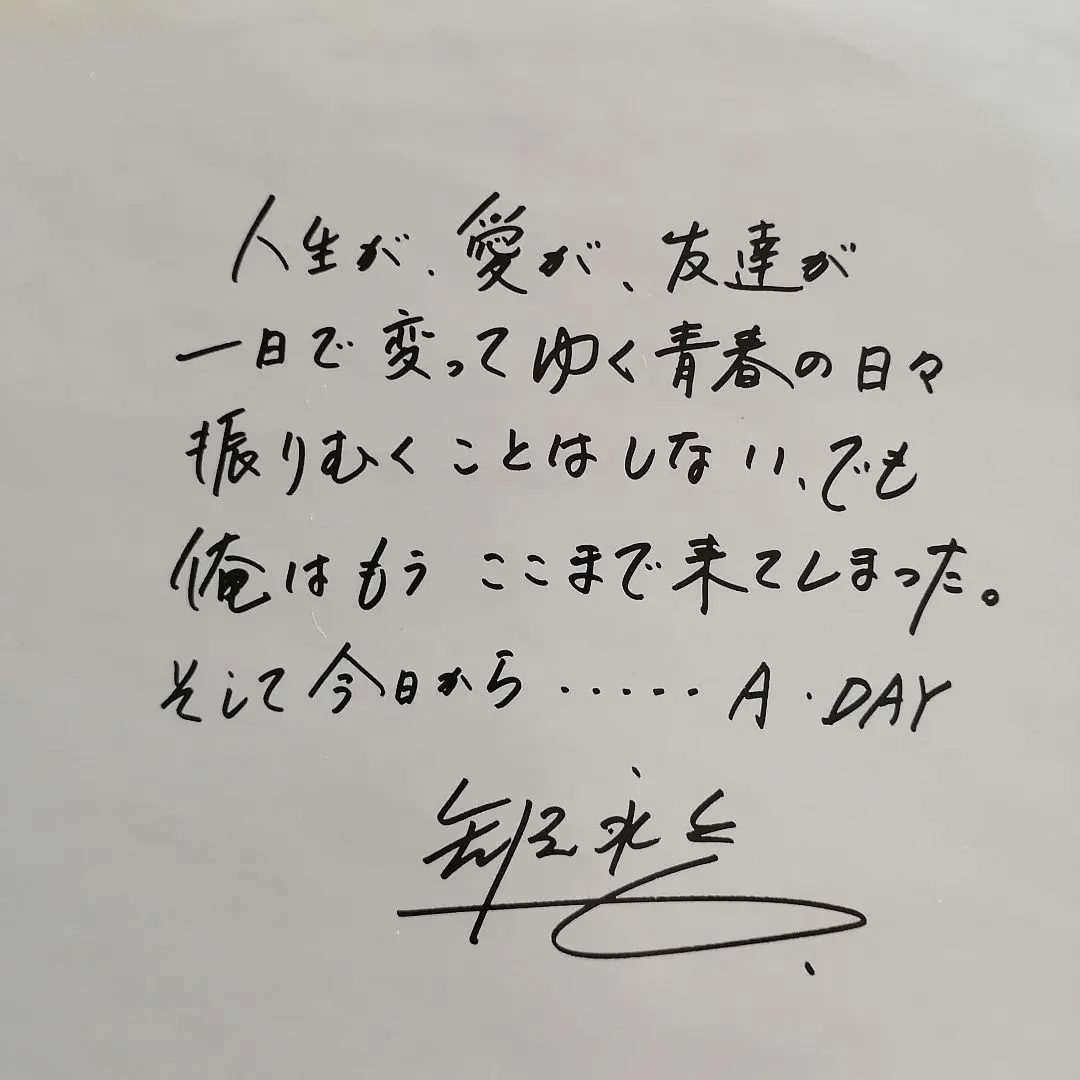 人生が、愛が、友達が
一日で変ってゆく青春の日々
振りむくことはしない、でも
俺はもう ここまで来てしまった。
そして今日から ‥‥‥ A・DAY
矢沢永吉